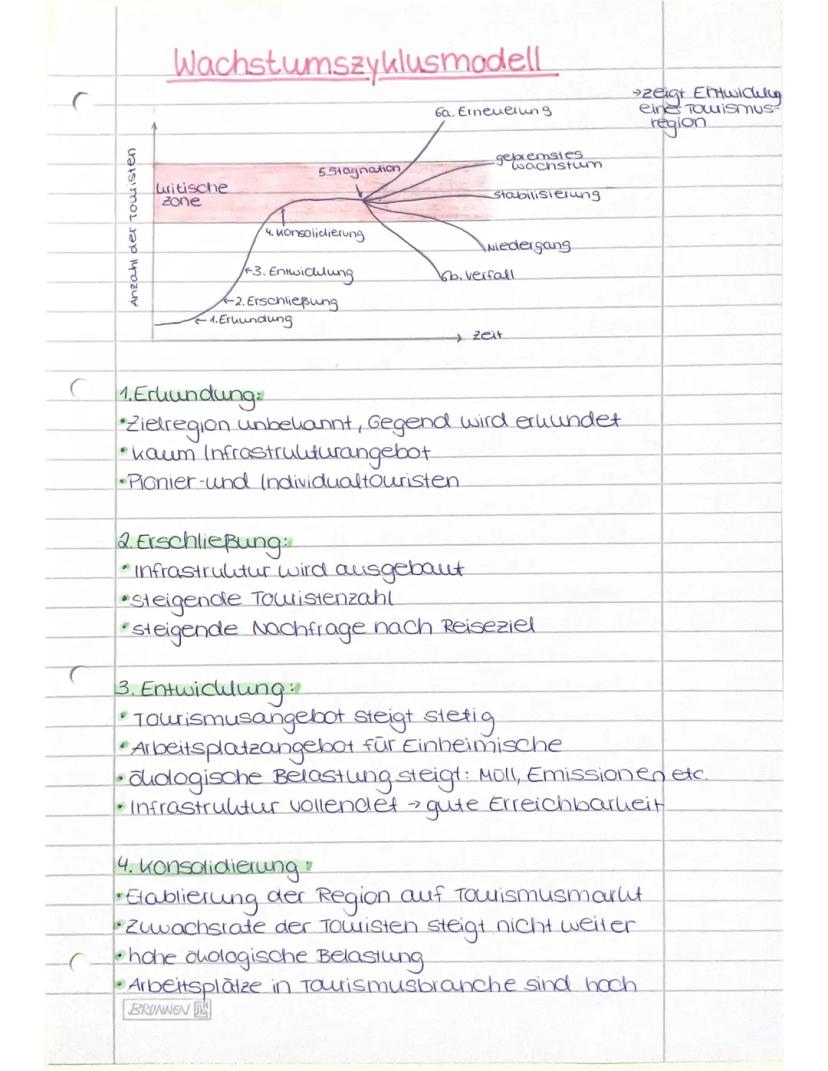 Wachstumszyklusmodell
→zeigt Entwicklung
eine Tourismus-
region
Anzahl der Touristen
kritische
zone
6a. Erneuerung
gebremstes
wachstum
5.Stagnation
stabilisierung
4. Konsolidierung
Niedergang
←3. Entwicklung
6b. Verfall
←2. Erschließung
←1. Erkundung
→ zeit
1. Erkundung:
•Zielregion unbekannt, Gegend wird erkundet
•kaum Infrastrukturangebot
•Pionier-und Individualtouristen
2. Erschließung:
•Infrastruktur wird ausgebaut
•steigende Touristenzahl
•steigende Nachfrage nach Reiseziel
3. Entwicklung:
•Tourismusangebot steigt stetig
•Arbeitsplatzangebot für Einheimische
•ökologische Belastung steigt: Müll, Emissionen etc.
•Infrastruktur vollendet → gute Erreichbarkeit
4. Konsolidierung:
•Etablierung der Region auf Tourismusmarkt
•Zuwachsrate der Touristen steigt nicht weiter
•hohe ökologische Belastung
•Arbeitsplätze in Tourismusbranche sind hoch
BRUNNEN